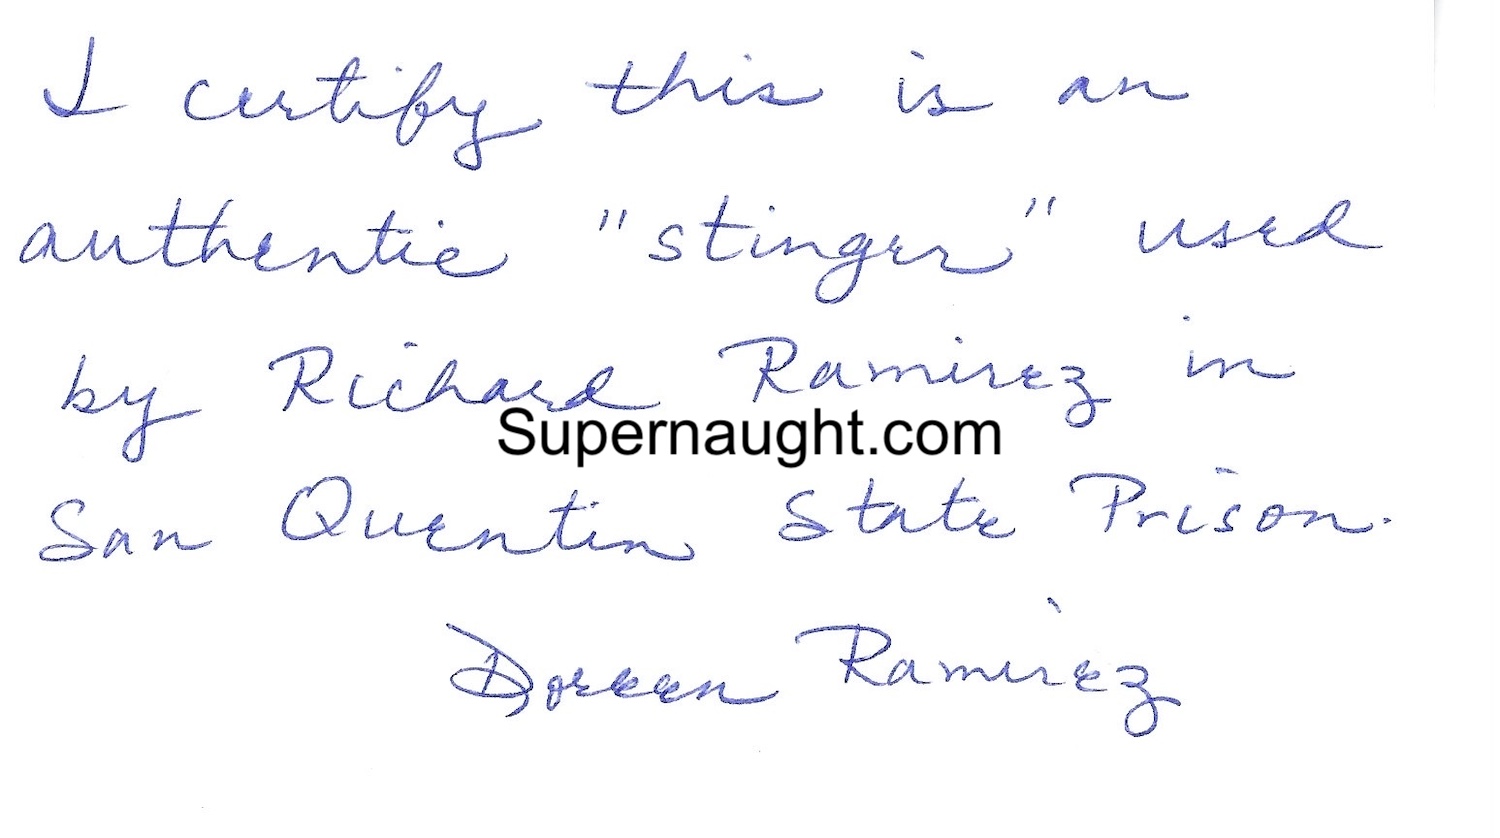 I certify this is an
authentic "stinger" used
by Richard Ramirez in
Supernaught.com
San Quentin State Prison.
Doreen Ramirez